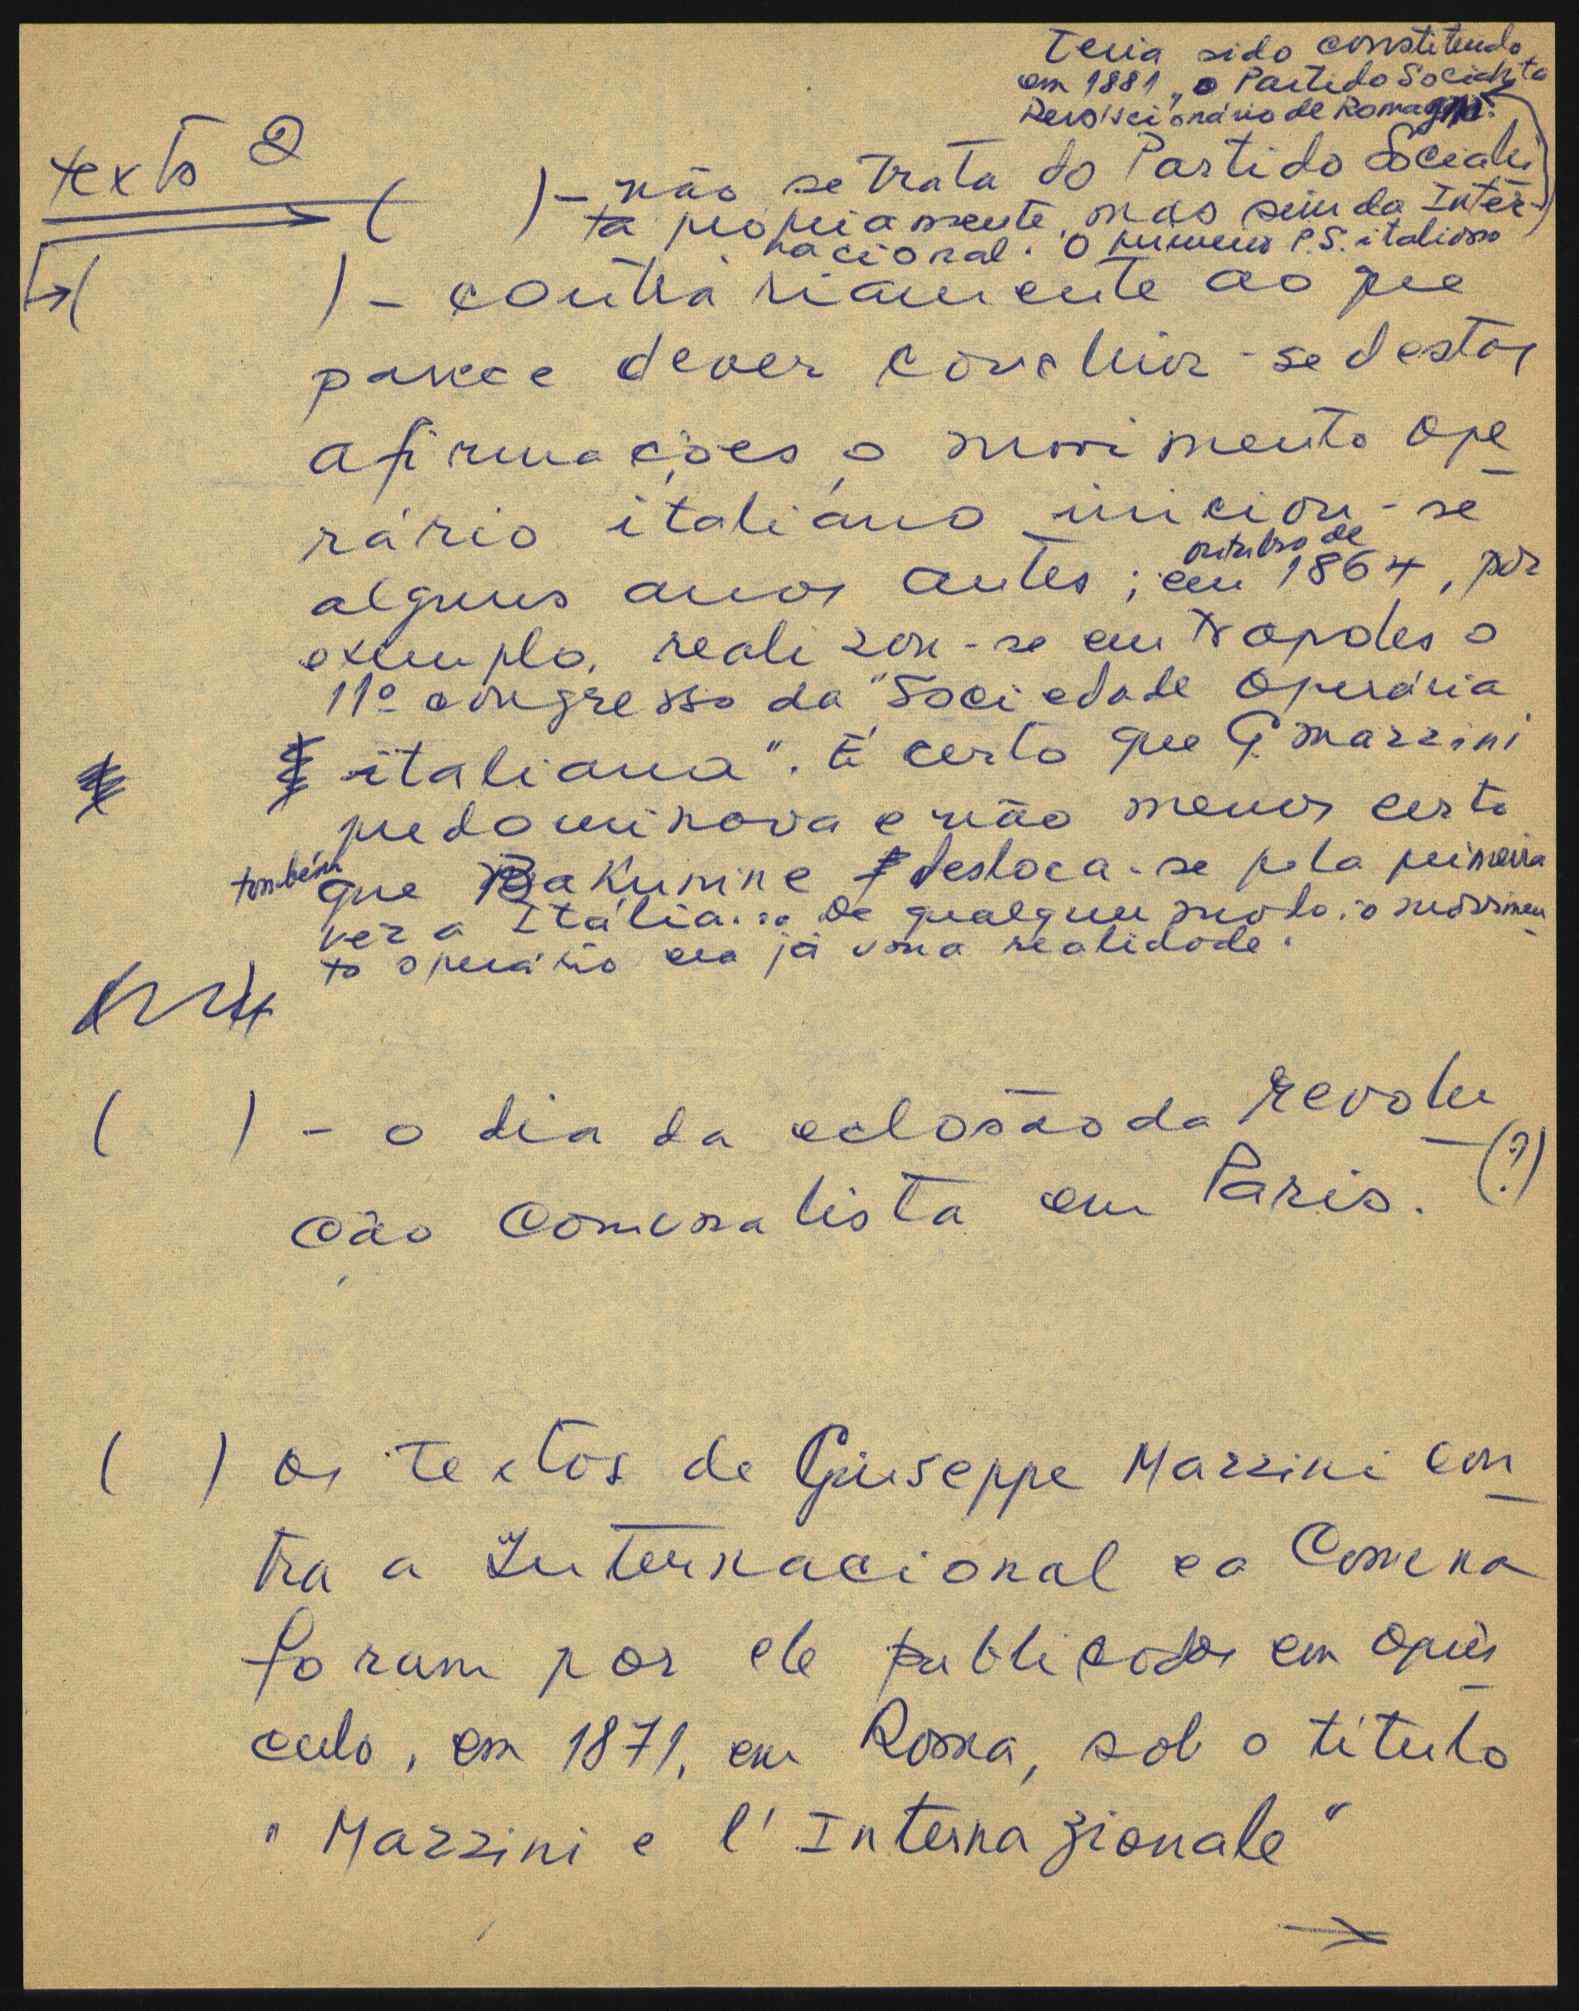 Teria sido constituido
em 1881, o Partido Socialista
Revolucionário de Romagna.
texto 2
( ) - não se trata do Partido Sociali
ta propriamente, mas sim da Inter-
nacional. O primeiro P.S. italiano
( ) - contràriamente ao que
parece dever concluir-se destas
afirmações, o movimento ope
rário italiano iniciou-se
alguns anos antes; em outubro de 1864, por
exemplo, realizou-se em Napoles o
11º congresso da "Sociedade Operária
italiana". É certo que G. Mazzini
predominava e não menos certo
também
que Bakunine desloca-se pela primeira
vez a Itália... De qualquer modo, o movimen
to operário era já uma realidade.
( ) - o dia da eclosão da revolu
ção comunalista em Paris. (?)
( ) os textos de Giuseppe Mazzini con
tra a Internacional e a Comuna
foram por ele publicados em opús
culo, em 1871, em Roma, sob o título
"Mazzini e l'Internazionale"